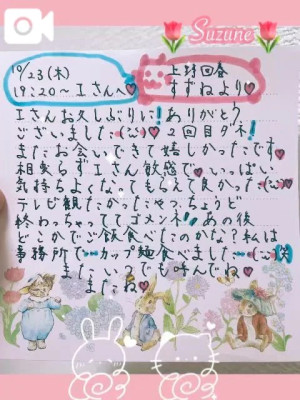 Suzune
10/23(木)
19:20〜Iさんへ♥
上野回春
すずねより♥
Iさんお久しぶりに!ありがとう
ございました(;;)♥2回目ダネ!
またお会いできて嬉しかったです♥
相変らずIさん敏感で、いっぱい
気持ちよくなってもらえて良かった(;;)♥
テレビ観たかったやつ、ちょうど
終わっちゃっててゴメンネ!!あの後
どこかでご飯食べたのかな?私は
事務所で…カップ麺食べました…(;;)
またいつでも呼んでね♥
またね♥